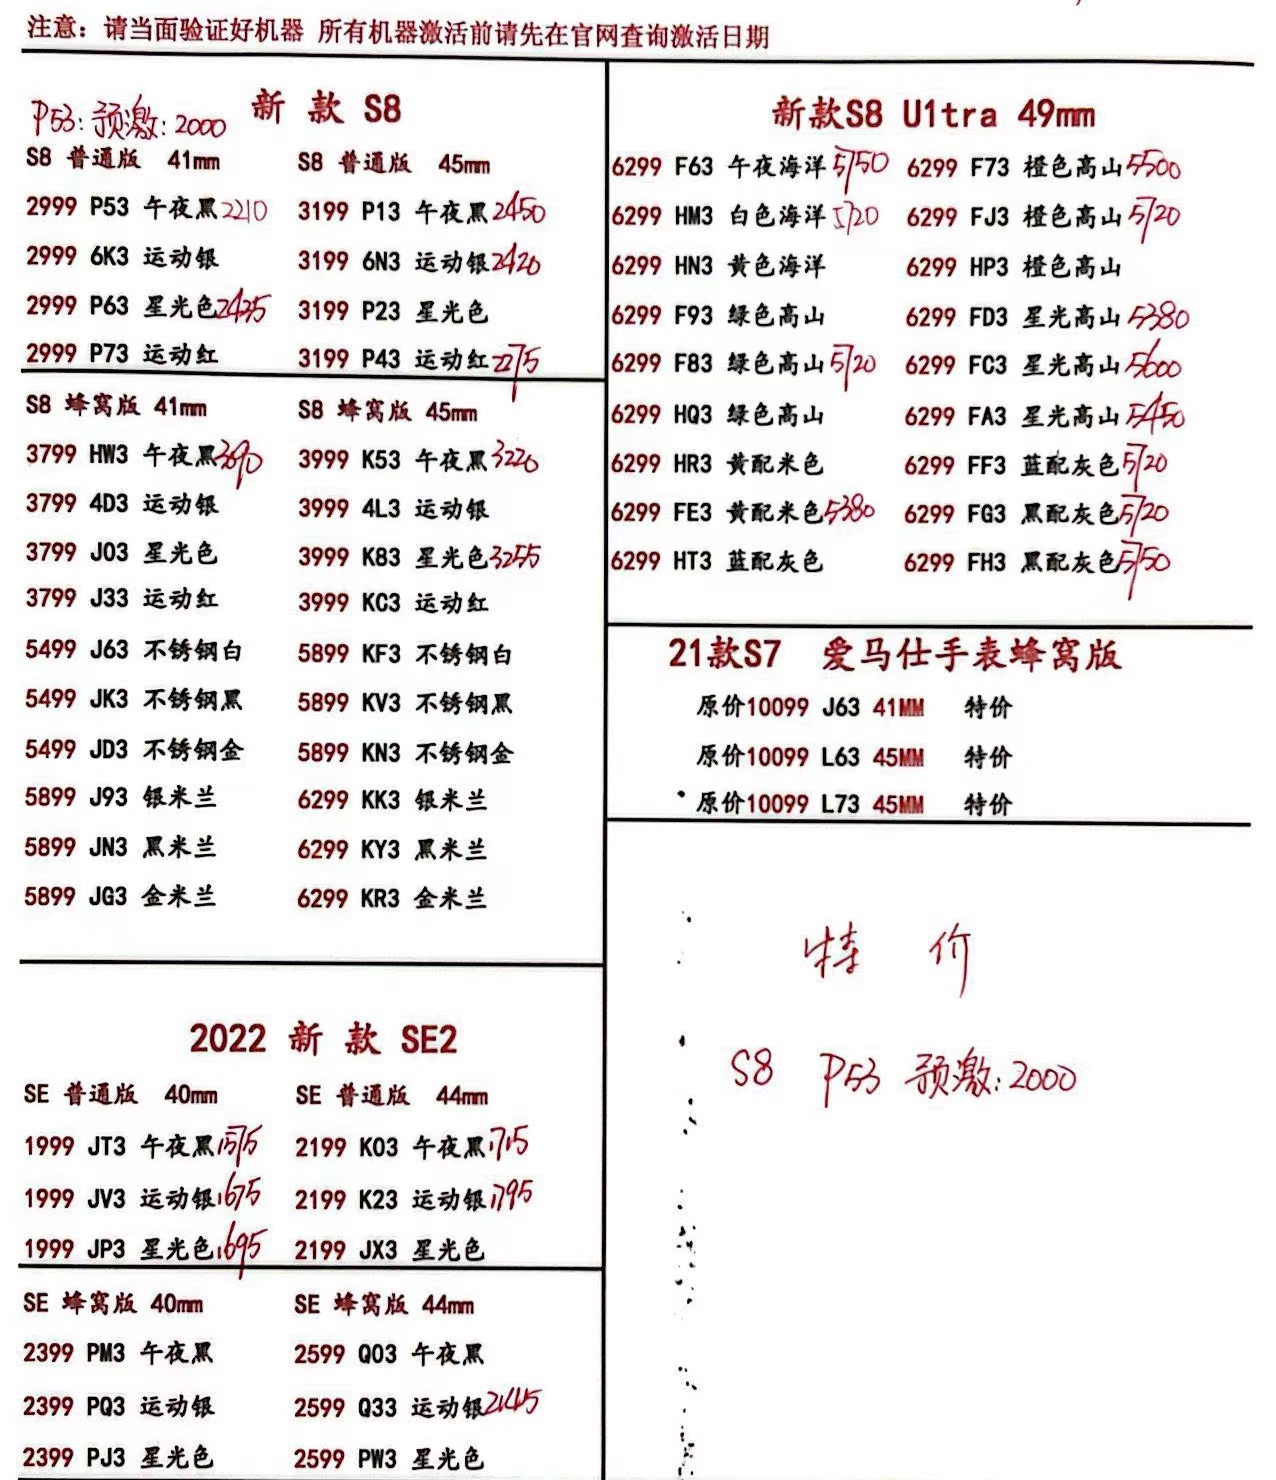 注意：请当面验证好机器 所有机器激活前请先在官网查询激活日期
P53:预激:2000
新 款 S8
S8 普通版 41mm S8 普通版 45mm
2999 P53 午夜黑2210 3199 P13 午夜黑2450
2999 6K3 运动银 3199 6N3 运动银2420
2999 P63 星光色2435 3199 P23 星光色
2999 P73 运动红 3199 P43 运动红2275
S8 蜂窝版 41mm S8 蜂窝版 45mm
3799 HW3 午夜黑 3999 K53 午夜黑3220
3799 4D3 运动银 3999 4L3 运动银
3799 J03 星光色 3999 K83 星光色3255
3799 J33 运动红 3999 KC3 运动红
5499 J63 不锈钢白 5899 KF3 不锈钢白
5499 JK3 不锈钢黑 5899 KV3 不锈钢黑
5499 JD3 不锈钢金 5899 KN3 不锈钢金
5899 J93 银米兰 6299 KK3 银米兰
5899 JN3 黑米兰 6299 KY3 黑米兰
5899 JG3 金米兰 6299 KR3 金米兰
2022 新 款 SE2
SE 普通版 40mm SE 普通版 44mm
1999 JT3 午夜黑1575 2199 K03 午夜黑1715
1999 JV3 运动银1675 2199 K23 运动银1795
1999 JP3 星光色1695 2199 JX3 星光色
SE 蜂窝版 40mm SE 蜂窝版 44mm
2399 PM3 午夜黑 2599 Q03 午夜黑
2399 PQ3 运动银 2599 Q33 运动银
2399 PJ3 星光色 2599 PW3 星光色
新款S8 Ultra 49mm
6299 F63 午夜海洋5150 6299 F73 橙色高山5500
6299 HM3 白色海洋5120 6299 FJ3 橙色高山5120
6299 HN3 黄色海洋 6299 HP3 橙色高山
6299 F93 绿色高山 6299 FD3 星光高山5380
6299 F83 绿色高山5120 6299 FC3 星光高山5600
6299 HQ3 绿色高山 6299 FA3 星光高山5450
6299 HR3 黄配米色 6299 FF3 蓝配灰色5120
6299 FE3 黄配米色5380 6299 FG3 黑配灰色5120
6299 HT3 蓝配灰色 6299 FH3 黑配灰色5150
21款S7 爱马仕手表蜂窝版
原价10099 J63 41MM 特价
原价10099 L63 45MM 特价
原价10099 L73 45MM 特价
特 价
S8 P53 预激:2000